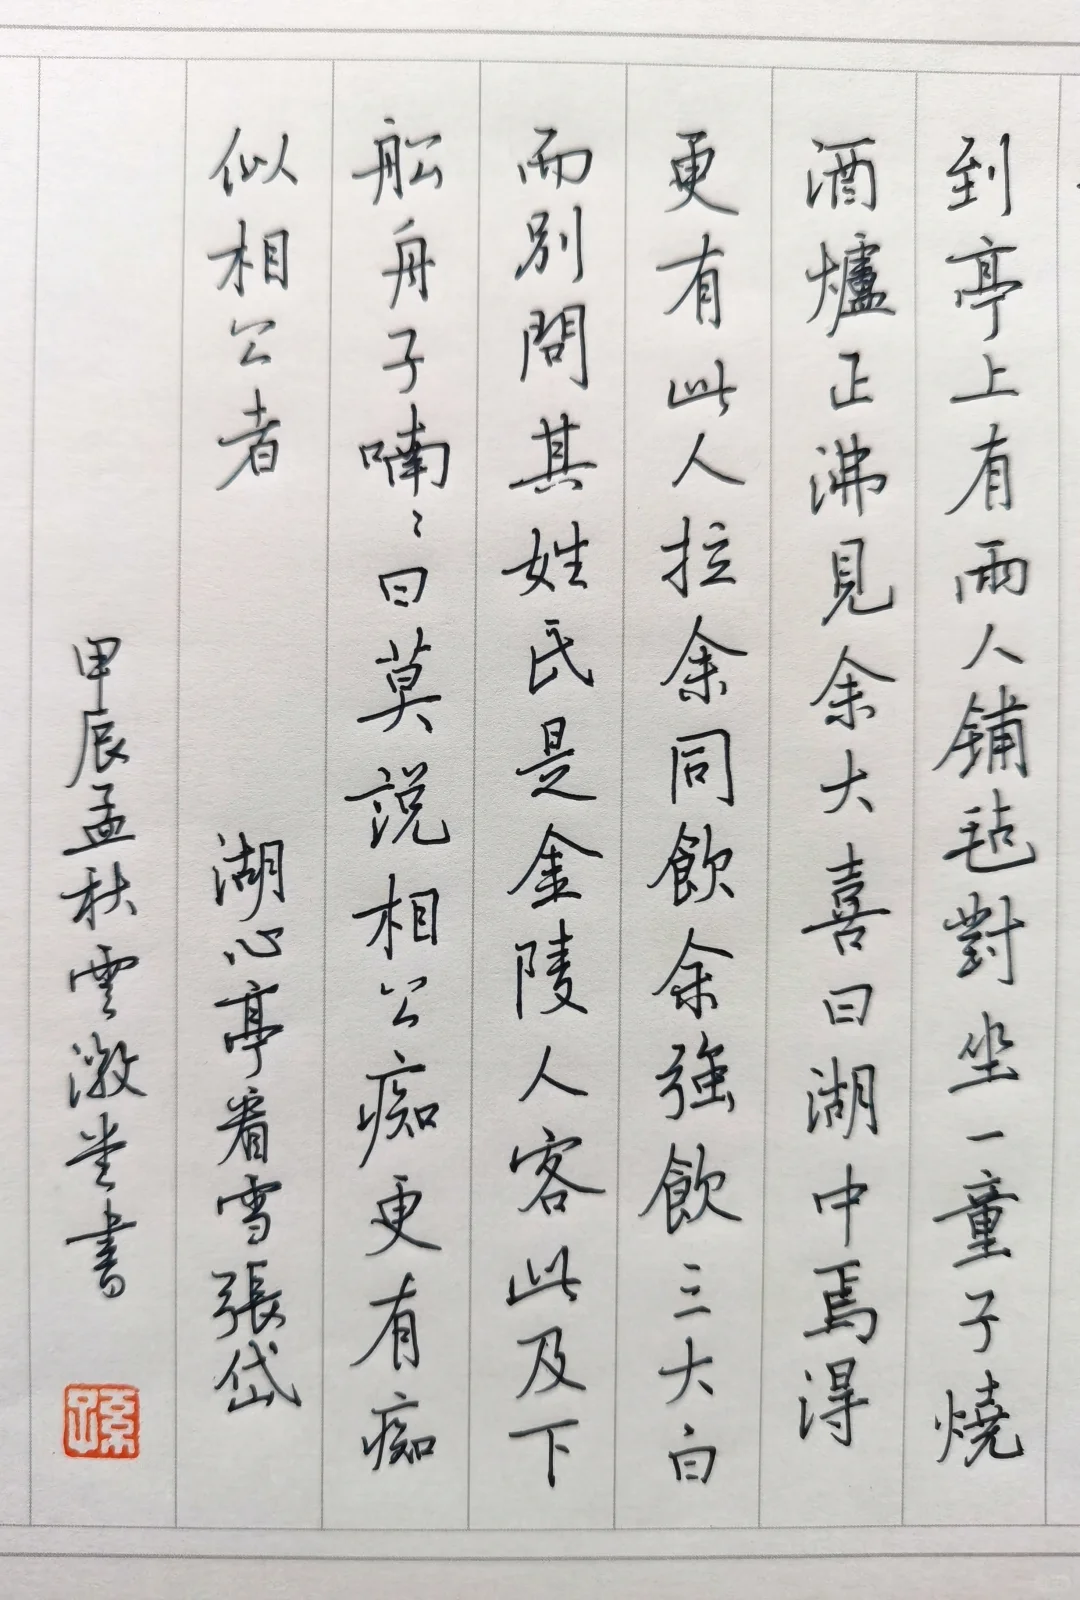 到亭上有兩人鋪毡對坐一童子燒
酒爐正沸見余大喜曰湖中焉得
更有此人拉余同飲余強飲三大白
而別問其姓氏是金陵人客此及下
舩舟子喃〻曰莫說相公痴更有痴
似相公者
湖心亭看雪張岱
甲辰孟秋雲澂堂書
孫